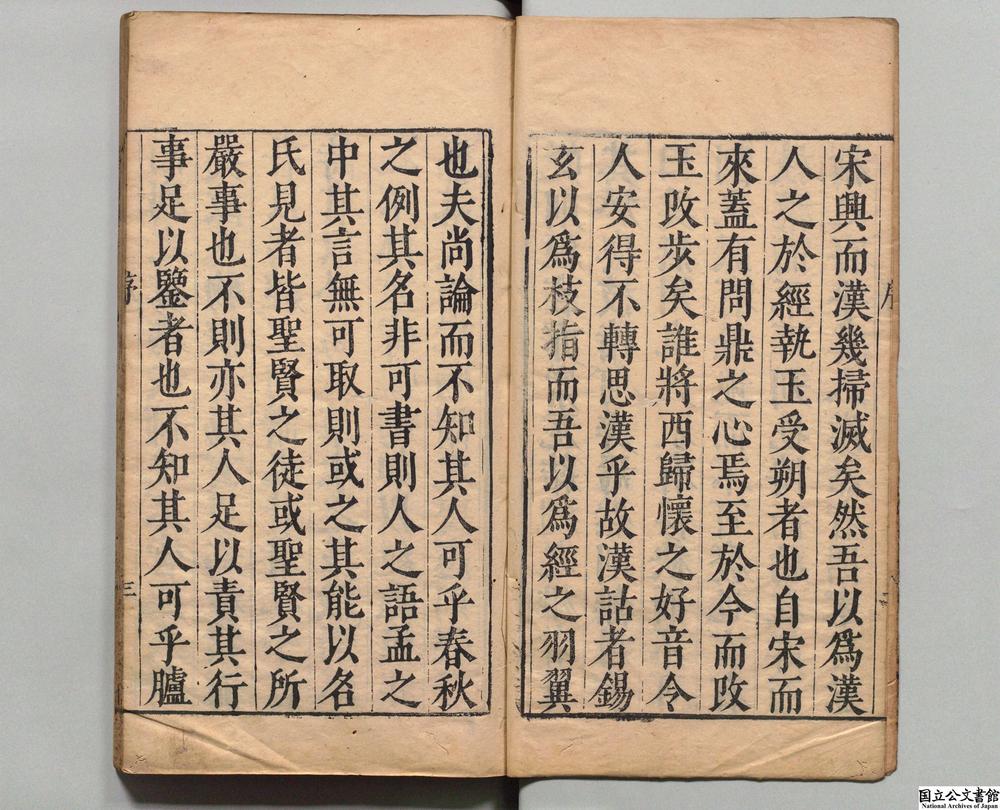 宋興而漢幾掃滅矣然吾以爲漢
人之於經執玉受朔者也自宋而
來蓋有問鼎之心焉至於今而改
玉改步矣誰將西歸懷之好音令
人安得不轉思漢乎故漢詁者錫
玄以爲枝指而吾以爲經之羽翼
也夫尚論而不知其人可乎春秋
之例其名非可書則人之語孟之
中其言無可取則或之其能以名
氏見者皆聖賢之徒或聖賢之所
嚴事也不則亦其人足以責其行
事足以鑒者也不知其人可乎臚
序
三
国立公文書館
National Archives of Japan